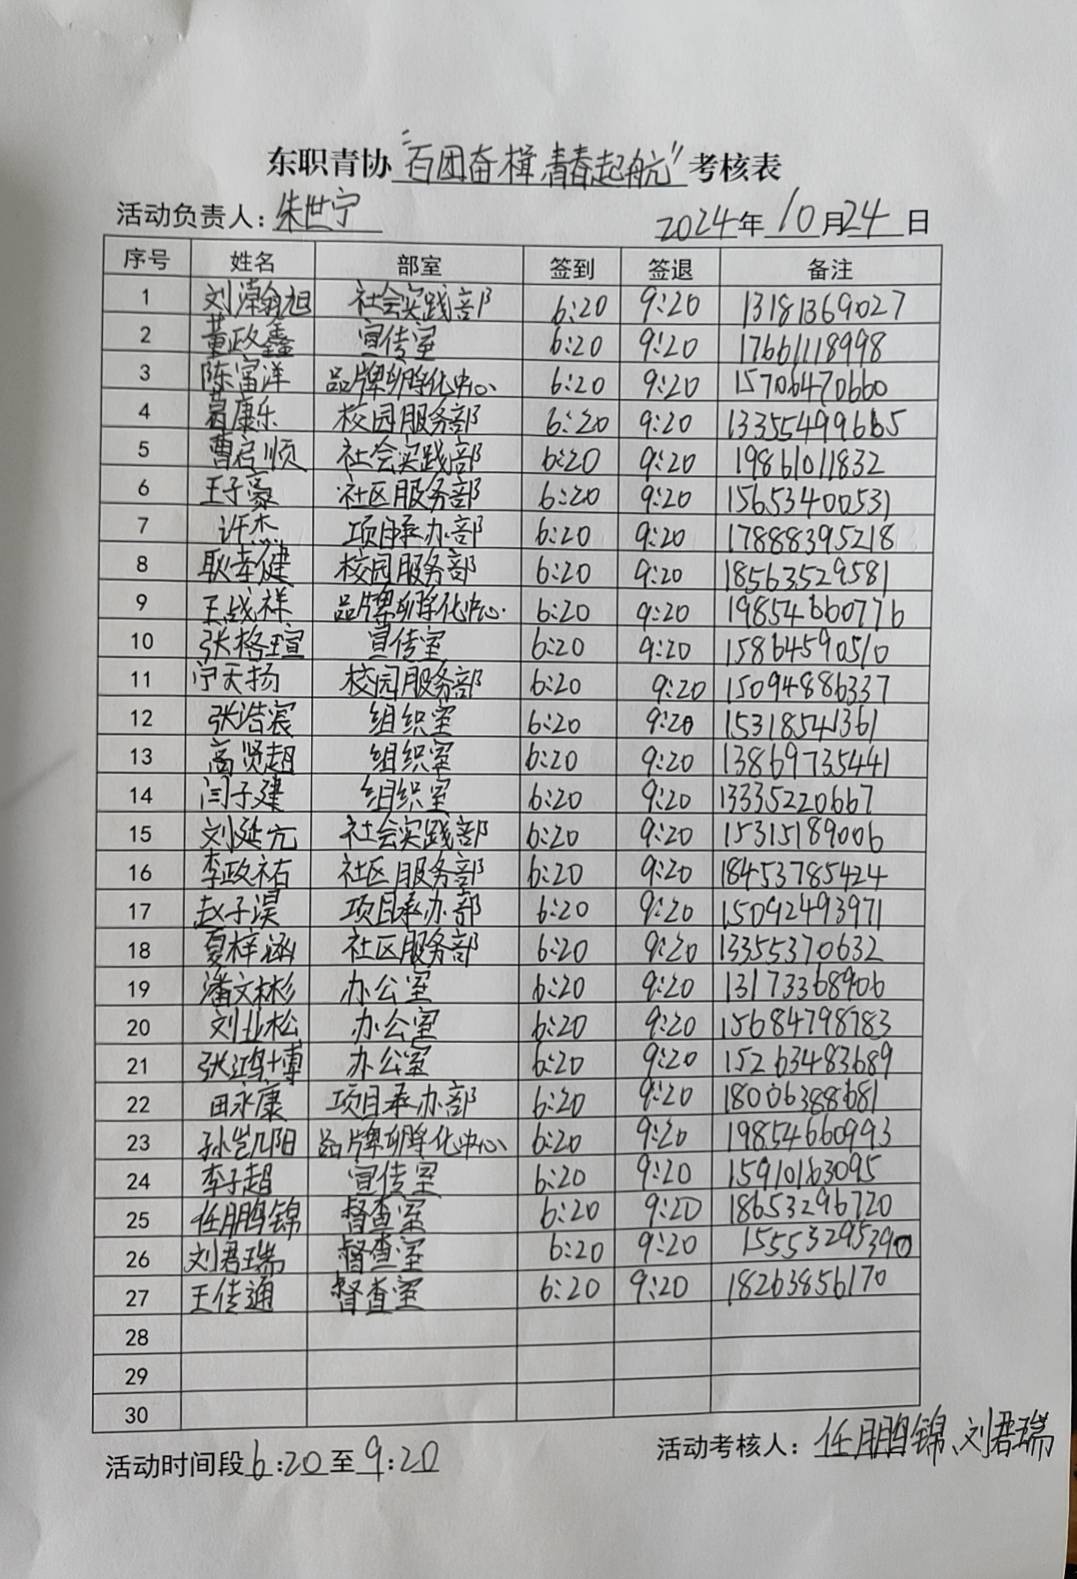 东职青协“百团奋楫,青春起航”考核表
活动负责人:朱世宁 2024年10月24日
序号 姓名 部室 签到 签退 备注
1 刘瀚旭 社会实践部 6:20 9:20 13181369027
2 董政鑫 宣传室 6:20 9:20 17661118998
3 陈富洋 品牌孵化中心 6:20 9:20 15706470660
4 葛康乐 校园服务部 6:20 9:20 13355499665
5 曹启顺 社会实践部 6:20 9:20 19861011832
6 王子豪 社区服务部 6:20 9:20 15653400531
7 许杰 项目承办部 6:20 9:20 17888395218
8 耿孝健 校园服务部 6:20 9:20 18563529581
9 王战祥 品牌孵化中心 6:20 9:20 19854660776
10 张格瑄 宣传室 6:20 9:20 15864590510
11 宁天扬 校园服务部 6:20 9:20 15094886337
12 张浩宸 组织室 6:20 9:20 15318541361
13 高贤超 组织室 6:20 9:20 13869735441
14 闫子建 组织室 6:20 9:20 13335220667
15 刘延亢 社会实践部 6:20 9:20 15315189006
16 李政祐 社区服务部 6:20 9:20 18453785424
17 赵子淏 项目承办部 6:20 9:20 15092493971
18 夏梓涵 社区服务部 6:20 9:20 13355370632
19 潘文彬 办公室 6:20 9:20 13173368906
20 刘业松 办公室 6:20 9:20 15684798783
21 张鸿博 办公室 6:20 9:20 15263483689
22 田永康 项目承办部 6:20 9:20 18006388681
23 孙岂凡阳 品牌孵化中心 6:20 9:20 19854660993
24 李子超 宣传室 6:20 9:20 15910163095
25 任鹏锦 督查室 6:20 9:20 18653296720
26 刘君瑞 督查室 6:20 9:20 15553295390
27 王传通 督查室 6:20 9:20 18263856170
28
29
30
活动时间段6:20至9:20 活动考核人:任鹏锦、刘君瑞